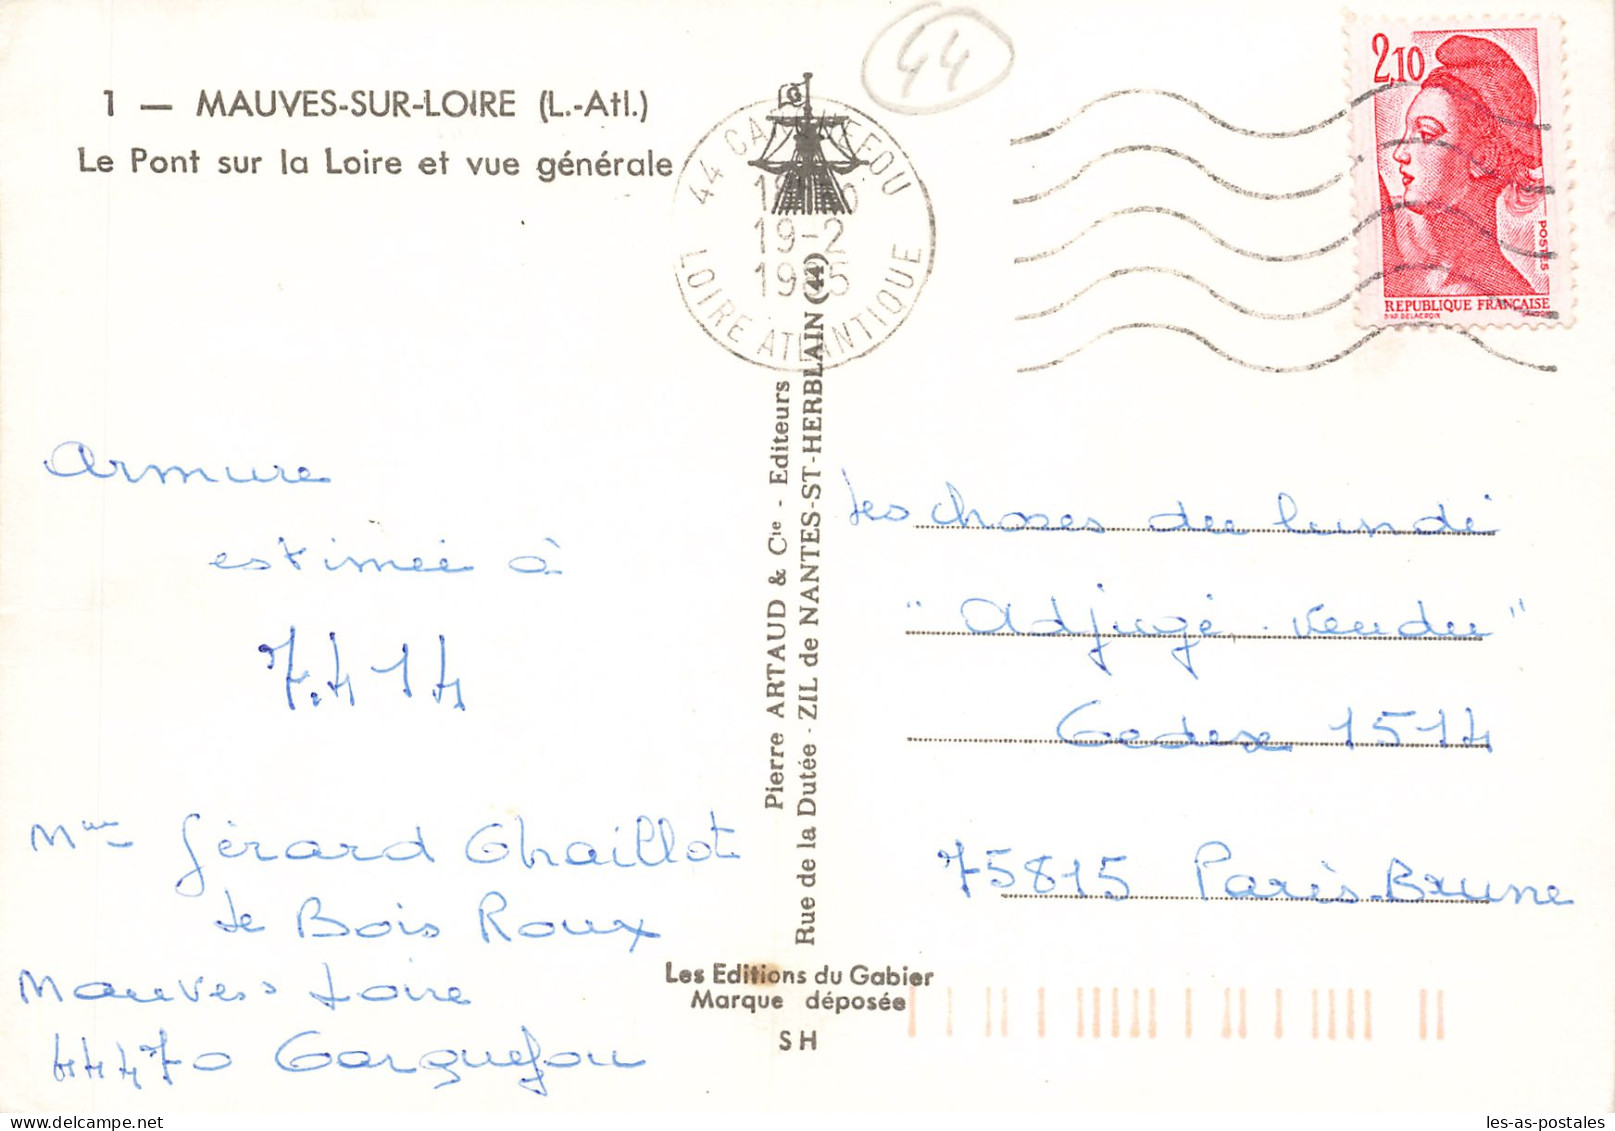 44
1 — MAUVES-SUR-LOIRE (L.-Atl.)
Le Pont sur la Loire et vue générale
44 CARQUEFOU
19-2
1985
LOIRE ATLANTIQUE
2,10
POSTES
REPUBLIQUE FRANÇAISE
D'AP. DELACROIX
GANDON
Armure
estimée à
7.414
Mme Gérard Chaillot
Le Bois Roux
Mauves s Loire
44470 Carquefou
Pierre ARTAUD & Cie - Editeurs
Rue de la Dutée - ZIL de NANTES-ST-HERBLAIN (44)
Les Editions du Gabier
Marque déposée
SH
Les choses du lundi
"Adjugé, vendu"
Cedex 1514
75815 Paris-Brune
les-as-postales